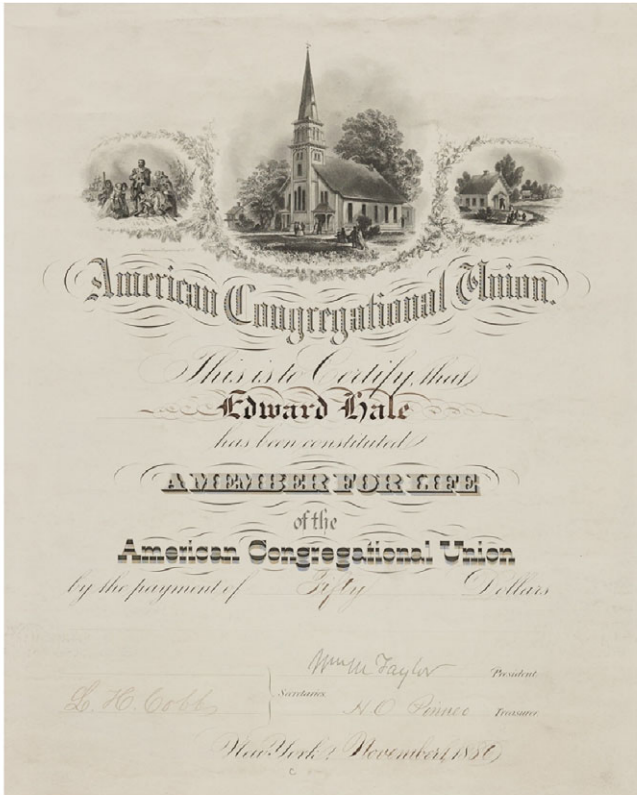 American Congregational Union.
This is to Certify, that
Edward Hale
has been constituted
A MEMBER FOR LIFE
of the
American Congregational Union
by the payment of Fifty Dollars
Wm M. Taylor President
L. H. Cobb Secretaries
H. O. Pinneo Treasurer
New York, November 1, 188